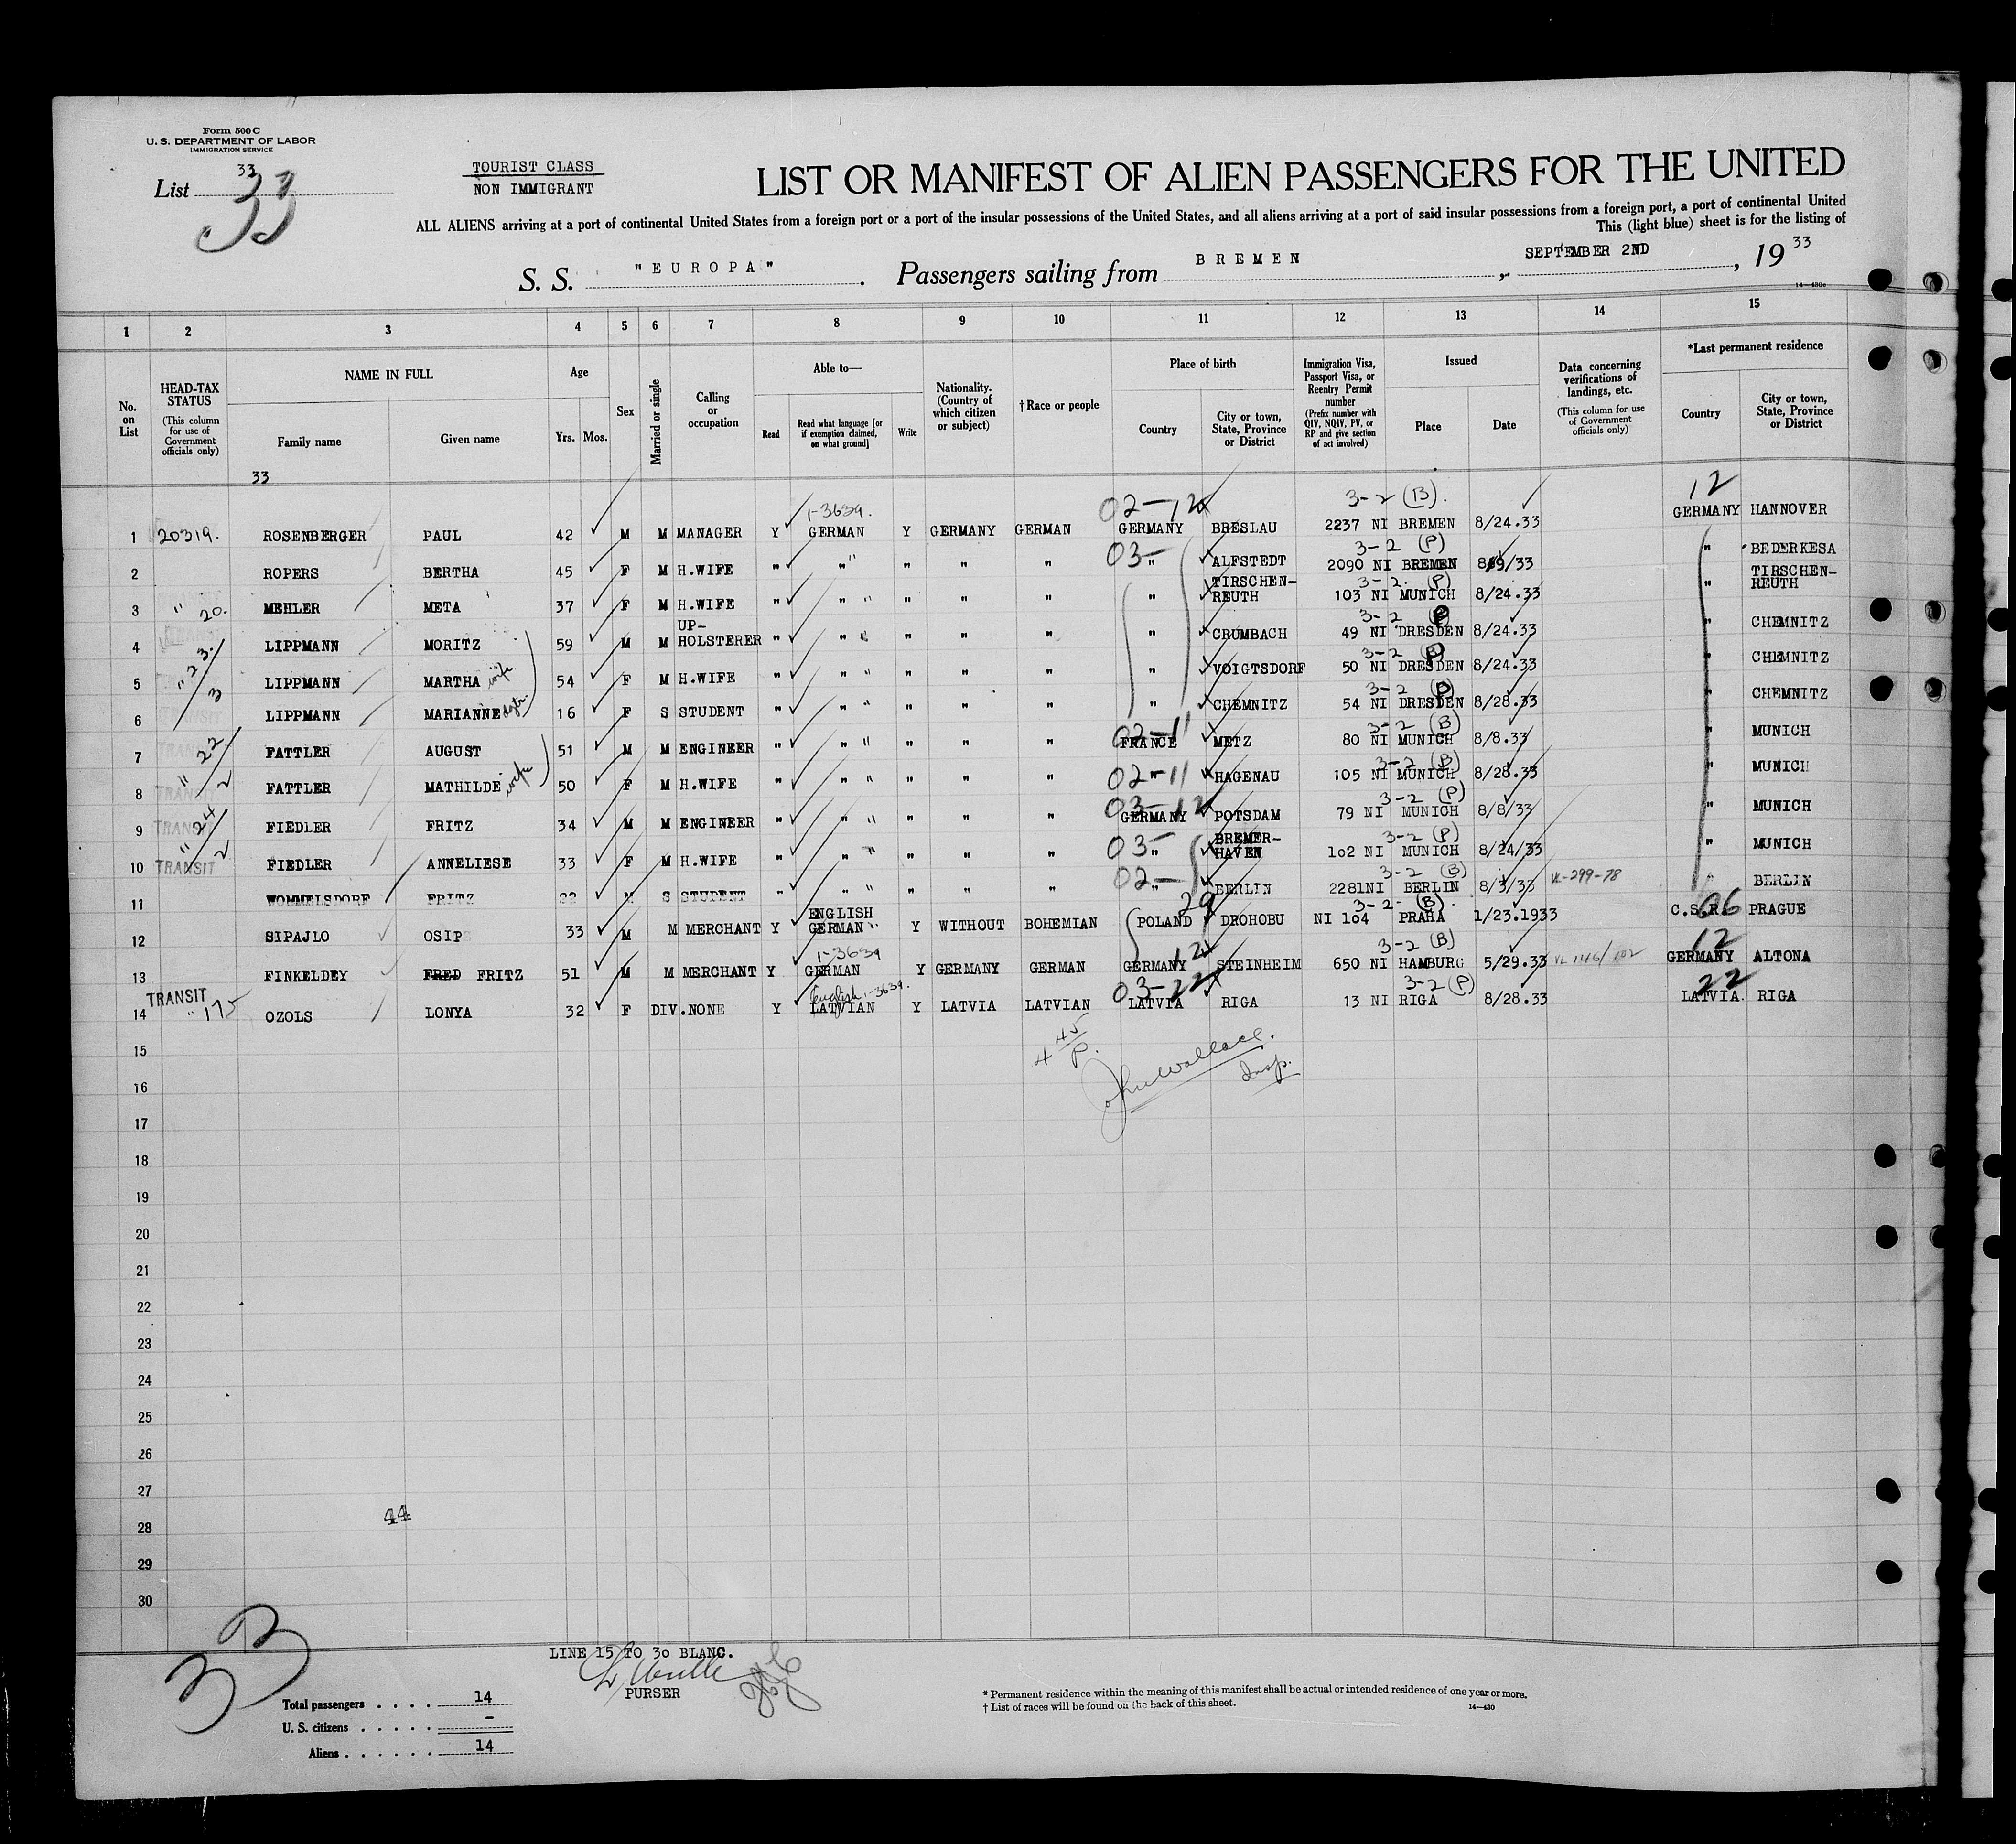 Form 500 C
U. S. DEPARTMENT OF LABOR
IMMIGRATION SERVICE
List 33
33
TOURIST CLASS
NON IMMIGRANT
LIST OR MANIFEST OF ALIEN PASSENGERS FOR THE UNITED
ALL ALIENS arriving at a port of continental United States from a foreign port or a port of the insular possessions of the United States, and all aliens arriving at a port of said insular possessions from a foreign port, a port of continental United
This (light blue) sheet is for the listing of
S. S. "EUROPA". Passengers sailing from BREMEN, SEPTEMBER 2ND, 1933
14—430c
1 2 3 4 5 6 7 8 9 10 11 12 13 14 15
No. on List
HEAD-TAX STATUS (This column for use of Government officials only)
NAME IN FULL
Family name
Given name
Age
Yrs. Mos.
Sex
Married or single
Calling or occupation
Able to—
Read
Read what language [or if exemption claimed, on what ground]
Write
Nationality. (Country of which citizen or subject)
†Race or people
Place of birth
Country
City or town, State, Province or District
Immigration Visa, Passport Visa, or Reentry Permit number (Prefix number with QIV, NQIV, PV, or RP and give section of act involved)
Issued
Place
Date
Data concerning verifications of landings, etc. (This column for use of Government officials only)
*Last permanent residence
Country
City or town, State, Province or District
33
1-3639. 02-12 3-2 (B). 12
1 20319. ROSENBERGER PAUL 42 M M MANAGER Y GERMAN Y GERMANY GERMAN GERMANY BRESLAU 2237 NI BREMEN 8/24.33 GERMANY HANNOVER
03- 3-2 (P)
2 ROPERS BERTHA 45 F M H.WIFE " " " " " " ALFSTEDT 2090 NI BREMEN /33 " BEDERKESA
3-2. (P)
3 " 20. MEHLER META 37 F M H.WIFE " " " " " " TIRSCHEN-REUTH 103 NI MUNICH 8/24.33 " TIRSCHEN-REUTH
3-2
4 LIPPMANN MORITZ 59 M M UP-HOLSTERER " " " " " " CRUMBACH 49 NI DRESDEN 8/24.33 " CHEMNITZ
3-2
5 " 23./3 LIPPMANN MARTHA wife 54 F M H.WIFE " " " " " " VOIGTSDORF 50 NI DRESDEN 8/24.33 " CHEMNITZ
3-2 (P)
6 TRANSIT LIPPMANN MARIANNE dgtr. 16 F S STUDENT " " " " " " CHEMNITZ 54 NI DRESDEN 8/28.33 " CHEMNITZ
02-11 3-2 (B)
7 TRANSIT FATTLER AUGUST 51 M M ENGINEER " " " " " FRANCE METZ 80 NI MUNICH 8/8.33 " MUNICH
02-11 3-2 (B)
8 TRANSIT " 22/2 FATTLER MATHILDE wife 50 F M H.WIFE " " " " " " HAGENAU 105 NI MUNICH 8/28.33 " MUNICH
03-12 3-2 (P)
9 TRANSIT FIEDLER FRITZ 34 M M ENGINEER " " " " " GERMANY POTSDAM 79 NI MUNICH 8/8/33 " MUNICH
03- 3-2 (P)
10 TRANSIT " 24/2 FIEDLER ANNELIESE 33 F M H.WIFE " " " " " " BREMER-HAVEN 102 NI MUNICH 8/24/33 " MUNICH
02- 3-2 (B)
11 WOMMELSDORF FRITZ 22 M S STUDENT " " " " " " BERLIN 2281NI BERLIN 8/3/33 VL-299-78 " BERLIN
29 3-2- (B). 06
12 SIPAJLO OSIP 33 M M MERCHANT Y ENGLISH GERMAN Y WITHOUT BOHEMIAN POLAND DROHOBU NI 104 PRAHA 1/23.1933 C.S.R. PRAGUE
1-3639 12 3-2 (B) 12
13 FINKELDEY FRED FRITZ 51 M M MERCHANT Y GERMAN Y GERMANY GERMAN GERMANY STEINHEIM 650 NI HAMBURG 5/29.33 VL 146/102 GERMANY ALTONA
English 1-3639. 03-22 3-2 (P) 22
14 TRANSIT " 175 OZOLS LONYA 32 F DIV. NONE Y LATVIAN Y LATVIA LATVIAN LATVIA RIGA 13 NI RIGA 8/28.33 LATVIA. RIGA
15
4 45 P.
John Wallace.
Insp.
16
17
18
19
20
21
22
23
24
25
26
27
44
28
29
30
33
LINE 15 TO 30 BLANC.
PURSER
Total passengers . . . . 14
U. S. citizens . . . . . –
Aliens . . . . . . 14
* Permanent residence within the meaning of this manifest shall be actual or intended residence of one year or more.
† List of races will be found on the back of this sheet.
14—430